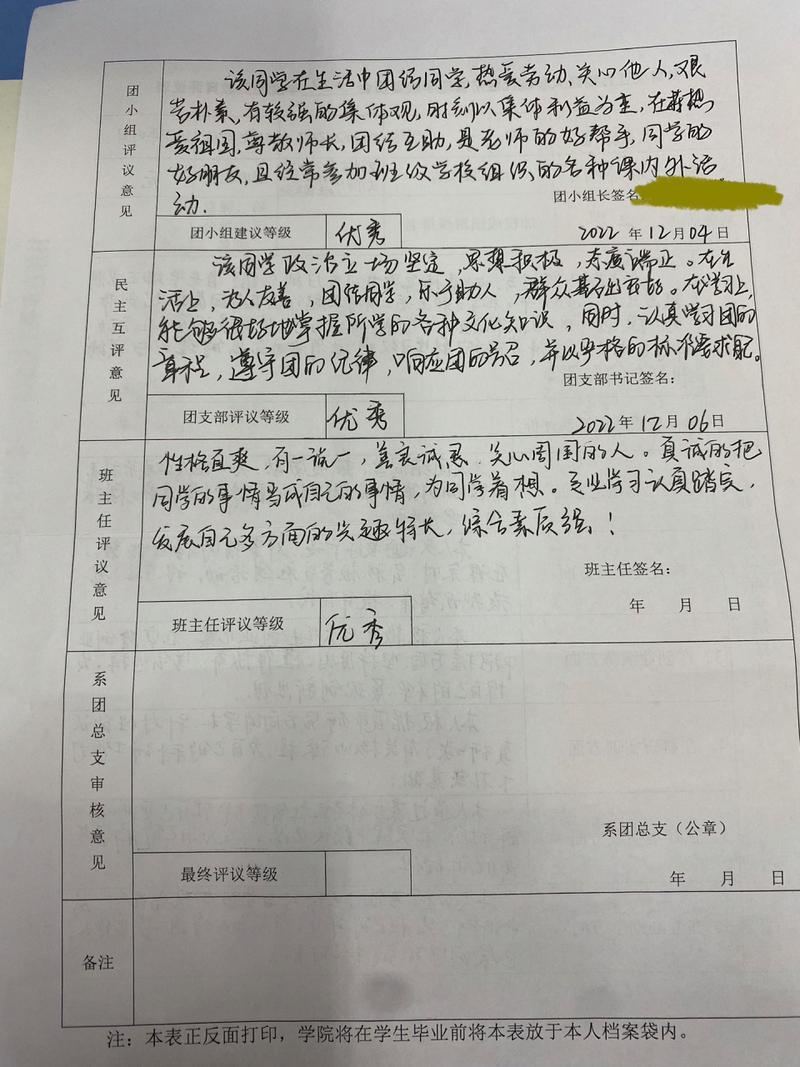 团小组评议意见
该同学在生活中团结同学,热爱劳动、关心他人,艰
苦朴素,有较强的集体观,时刻以集体利益为主,在热
爱祖国,尊敬师长,团结互助,是老师的好帮手,同学的
好朋友,且经常参加班级学校组织的各种课内外活
动.
团小组长签名
团小组建议等级
优秀
2022 年 12 月 04 日
民主互评意见
该同学政治立场坚定,思想积极,态度端正。在生
活上,为人友善,团结同学,乐于助人,群众基础良好。在学习上,
能够很好地掌握所学的各种文化知识,同时,认真学习团的
章程,遵守团的纪律,响应团的号召,并以严格的标准要求自己。
团支部书记签名:
团支部评议等级
优秀
2022 年 12 月 06 日
班主任评议意见
性格直爽,有一说一,善良诚恳,关心周围的人。真诚的把
同学的事情当成自己的事情,为同学着想。专业学习认真踏实,
发展自己多方面的兴趣特长,综合素质强!
班主任签名:
班主任评议等级
优秀
年 月 日
系团总支审核意见
系团总支(公章)
最终评议等级
年 月 日
备注
注:本表正反面打印,学院将在学生毕业前将本表放于本人档案袋内。